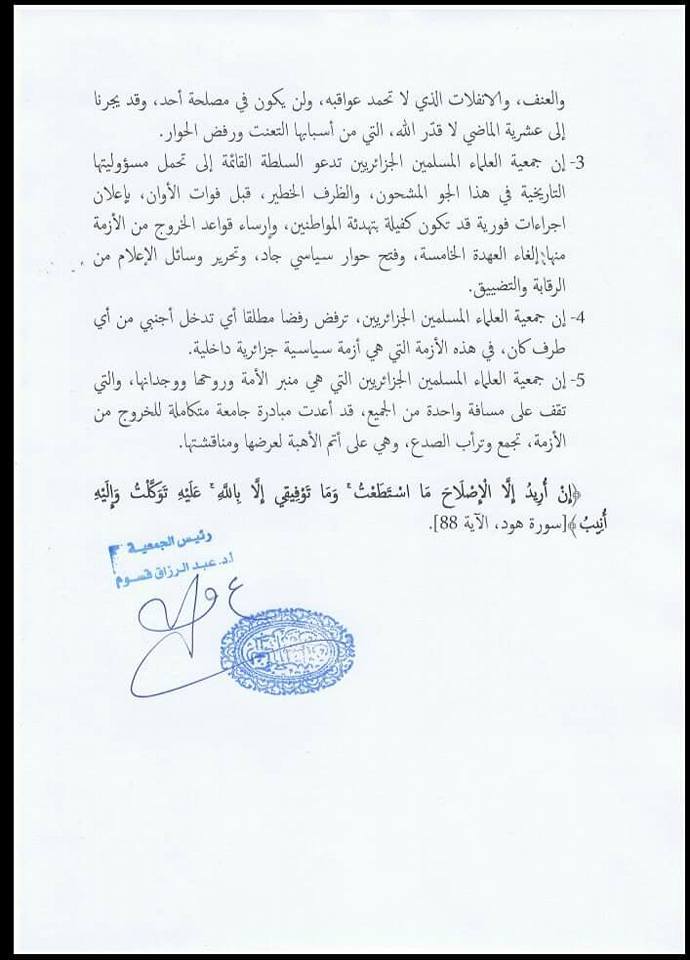 والعنف، والانفلات الذي لا تحمد عواقبه، ولن يكون في مصلحة أحد، وقد يجرنا
إلى عشرية الماضي لا قدّر الله، التي من أسبابها التعنت ورفض الحوار.
3- إن جمعية العلماء المسلمين الجزائريين تدعو السلطة القائمة إلى تحمل مسؤوليتها
التاريخية في هذا الجو المشحون، والظرف الخطير، قبل فوات الأوان، بإعلان
اجراءات فورية قد تكون كفيلة بتهدئة المواطنين، وإرساء قواعد الخروج من الأزمة
منها: إلغاء العهدة الخامسة، وفتح حوار سياسي جاد، وتحرير وسائل الإعلام من
الرقابة والتضييق.
4- إن جمعية العلماء المسلمين الجزائريين، ترفض رفضا مطلقا أي تدخل أجنبي من أي
طرف كان، في هذه الأزمة التي هي أزمة سياسية جزائرية داخلية.
5- إن جمعية العلماء المسلمين الجزائريين التي هي منبر الأمة وروحها ووجدانها، والتي
تقف على مسافة واحدة من الجميع، قد أعدت مبادرة جامعة متكاملة للخروج من
الأزمة، تجمع وترأب الصدع، وهي على أتم الأهبة لعرضها ومناقشتها.
﴿إِنْ أُرِيدُ إِلَّا الْإِصْلَاحَ مَا اسْتَطَعْتُ ۚ وَمَا تَوْفِيقِي إِلَّا بِاللَّهِ ۚ عَلَيْهِ تَوَكَّلْتُ وَإِلَيْهِ
أُنِيبُ﴾[سورة هود، الآية 88].
رئيس الجمعية
أ.د. عبد الرزاق قسوم